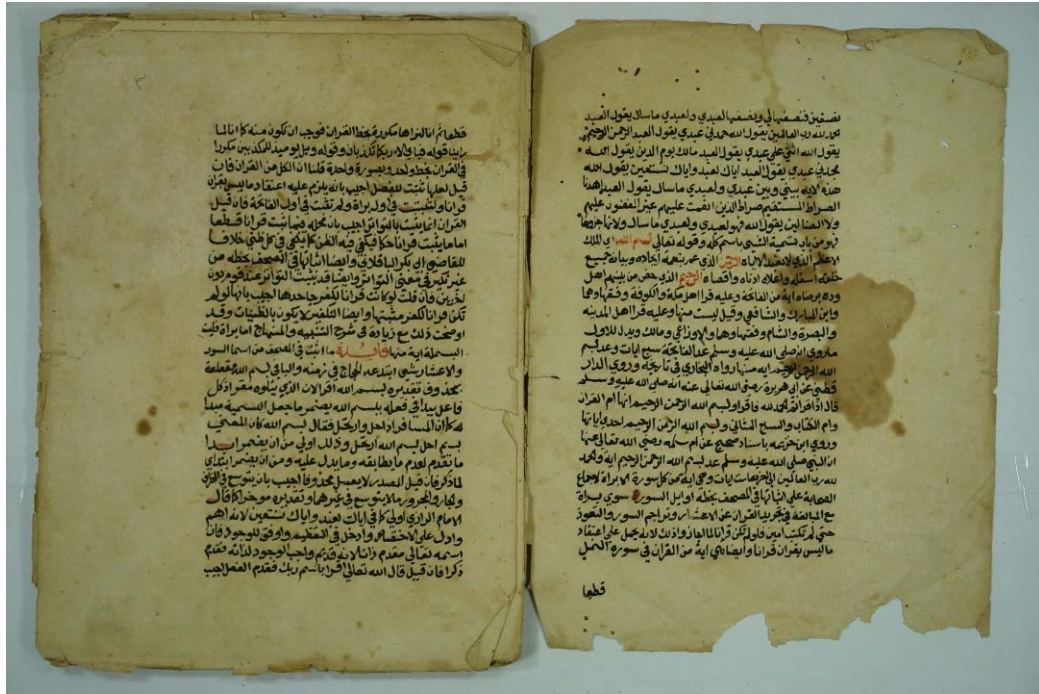 نصفين فنصفها لي ونصفها لعبدي ولعبدي ما سال يقول العبد
الحمد لله رب العالمين يقول الله حمدني عبدي يقول العبد الرحمن الرحيم
يقول الله اثنى علي عبدي يقول العبد مالك يوم الدين يقول الله
مجدني عبدي يقول العبد اياك نعبد واياك نستعين يقول الله
هذه الاية بيني وبين عبدي ولعبدي ما سال يقول العبد اهدنا
الصراط المستقيم صراط الذين انعمت عليهم غير المغضوب عليهم
ولا الضالين يقول الله فهو لعبدي ولعبدي ما سال ولانها جزوها
فهو من باب تسمية الشي باسم كله وقوله تعالى بسم الله اي الملك
الاعظم الذي لا نعبد الا اياه الرحمن الذي عم بنعمة ايجاده وبيانه جميع
خلقه اسفله واعلاه ادناه واقصاه الرحيم الذي خص من بينهم اهل
وده برضاه اية من الفاتحة وعليه قرا اهل مكة والكوفة وفقهاوهما
وابن المبارك والشافعي وقيل ليست منها وعليه قرا اهل المدينه
والبصرة والشام وفقهاوها والاوزاعي ومالك ويدل للاول
ماروي انه صلى الله عليه وسلم عد الفاتحة سبع ايات وعد بسم
الله الرحمن الرحيم ايه منها رواه البخاري في تاريخه وروي الدار
قطني عن ابي هريرة رضي الله تعالى عنه انه صلى الله عليه وسلم
قال اذا قراتم الحمد لله فاقروا بسم الله الرحمن الرحيم انها ام القران
وام الكتاب والسبع المثاني وبسم الله الرحمن الرحيم احدي اياتها
وروي ابن خزيمه باسناد صحيح عن ام سلمه رضي الله تعالى عنها
ان النبي صلى الله عليه وسلم عد بسم الله الرحمن الرحيم ايه والحمد
لله رب العالمين الى اخرها ست ايات وهي اية من كل سورة الا براة لاجماع
الصحابة على اثباتها في المصحف بخطه اوايل السور سوى براة
مع المبالغة في تجريد القران عن الاعشار وتراجم السور والتعوذ
حتى لم تكتب امين فلو لم تكن قرانا لما اجازوا ذلك لانه يحمل على اعتقاد
ما ليس بقران قرانا وايضا هي اية من القران في سورة النمل
قطعا
قطعا ثم انا نراها مكررة بخط القران فوجب ان تكون منه كما انا لما
راينا قوله فباي الاء ربكما تكذبان وقوله ويل يوميذ للمكذبين مكررا
في القران بخط واحد وبصورة واحدة قلنا ان الكل من القران فان
قيل لعلها ثبتت للفصل اجيب بانه يلزم عليه اعتقاد ما ليس بقران
قرانا ولثبتت في اول براة ولم تثبت في اول الفاتحة فان قيل
القران انما يثبت بالتواتر اجيب بان محله فيما يثبت قرانا قطعا
اما ما يثبت قرانا حكما فيكفي فيه الظن كما يكفي في كل ظني خلافا
للقاضي ابي بكر الباقلاني وايضا اثباتها في المصحف بخطه من
غير نكير في معنى التواتر وايضا قد يثبت التواتر عند قوم دون
اخرين فان قلت لو كانت قرانا لكفر جاحدها اجيب بانها لو لم
تكن قرانا لكفر مثبتها وايضا التكفير لا يكون بالظنيات وقد
اوضحت ذلك مع زيادة في شرح التنبيه والمنهاج اما براة فليست
البسملة اية منها فايدة ما اثبت في المصحف من اسما السور
والاعشار شي ابتدعه الحجاج في زمنه والبا في بسم الله متعلقة
بمحذوف تقديره بسم الله اقرا لان الذي يتلوه مقرو اذ كل
فاعل يبدا في فعله ببسم الله يضمر ما جعل التسمية مبدا
له كما ان المسافر اذا حل وارتحل فقال بسم الله كان المعنى
بسم الله احل بسم الله ارتحل وذلك اولى من ان يضمر ابدا
ما تقدم لعدم ما يطابقه وما يدل عليه ومن ان يضمر ابتداي
لما ذكر فان قيل المصدر لا يعمل محذوفا اجيب بان يتوسع في الظرف
والجار والمجرور ما لا يتوسع في غيرهما وتقديره موخرا كما قال
الامام الرازي اولى كما في اياك نعبد واياك نستعين لانه اهم
وادل على الاختصاص وادخل في التعظيم واوفق للوجود فان
اسمه تعالى مقدم ذاتا لانه قديم واجب الوجود لذاته فقدم
ذكرا فان قيل قال الله تعالى اقرا باسم ربك فقدم الفعل اجيب